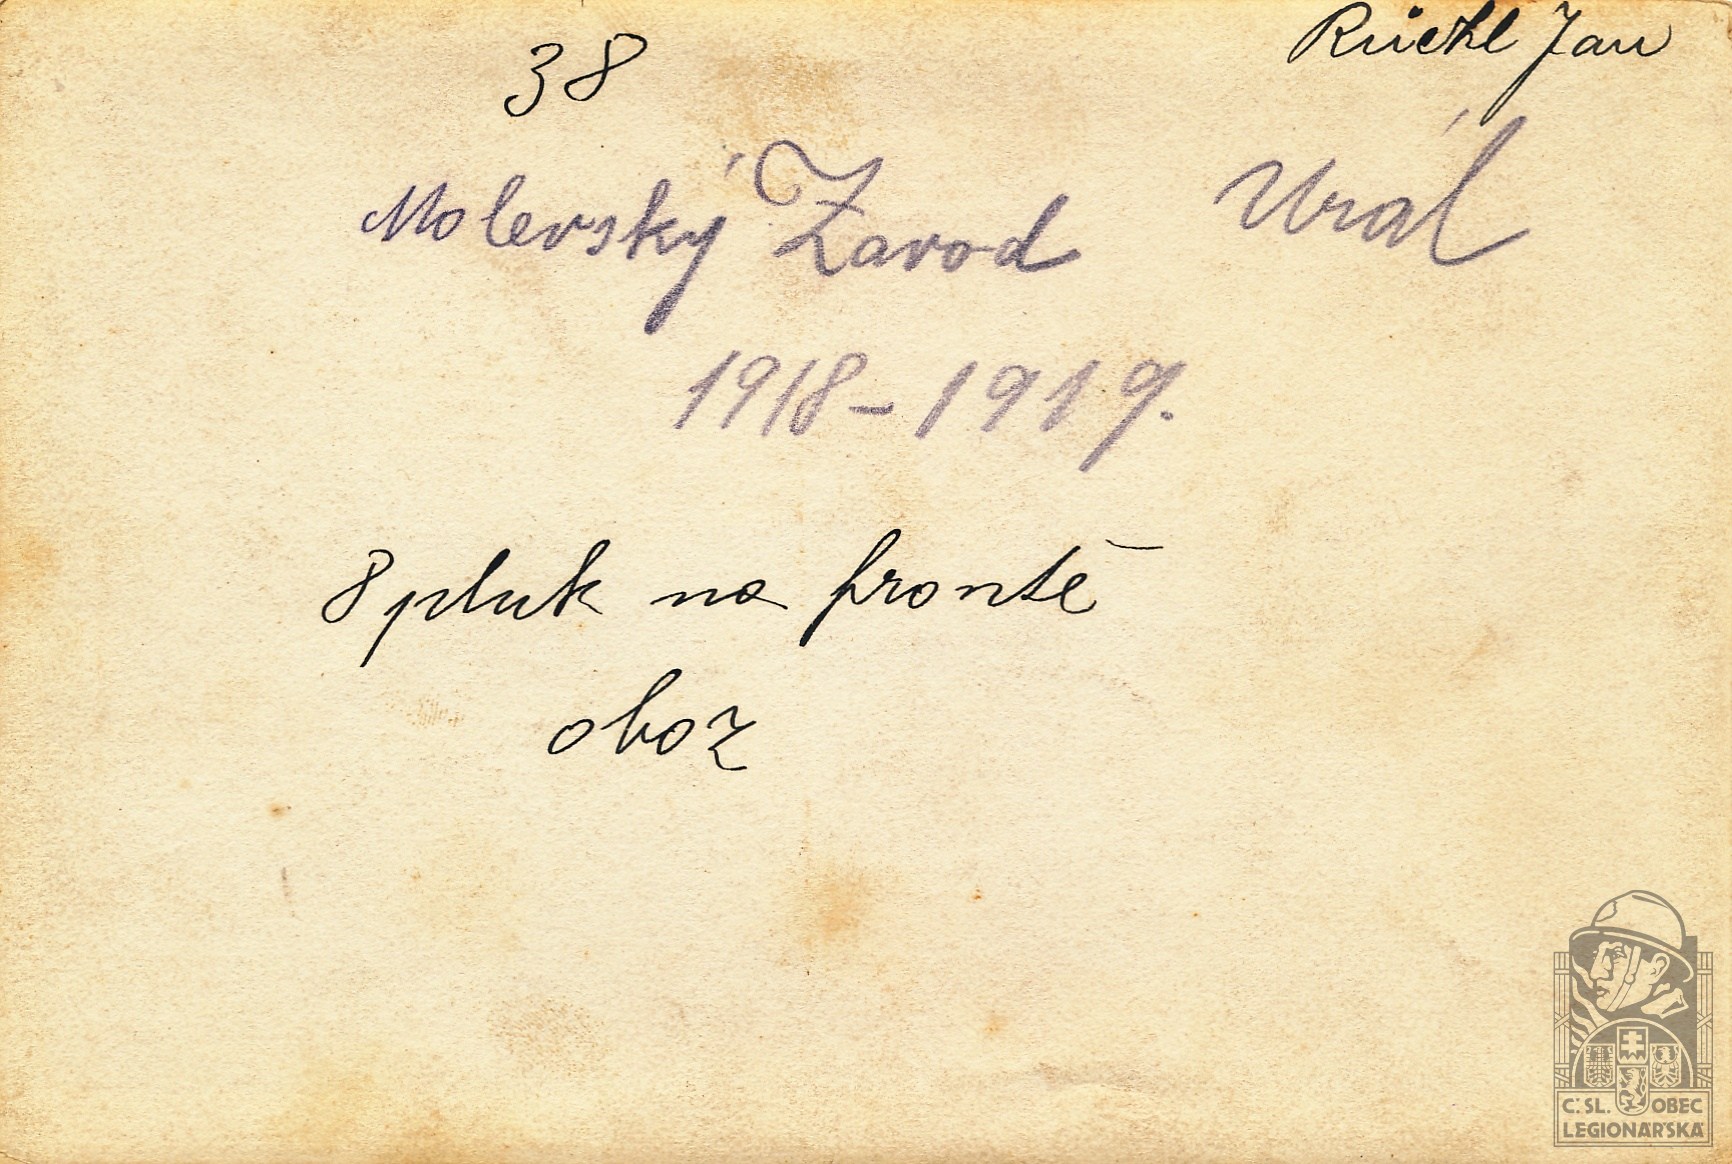 38
Rückl Jan
Molevský Závod Urál
1918 - 1919.
8 pluk na frontě
oboz
Č. SL. OBEC
LEGIONÁŘSKÁ